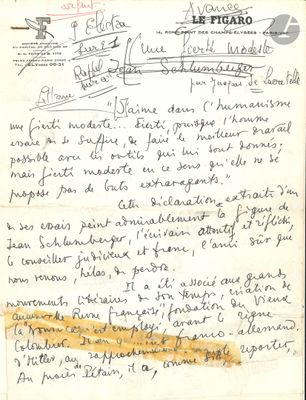 Avance
LE FIGARO
14, ROND-POINT DES CHAMPS-ÉLYSÉES - PARIS-VIIIe
Une fierté modeste
Jean Schlumberger
par Jacques de Lacretelle
"J'aime dans l'humanisme
une fierté modeste... Fierté, puisque l'homme
essaie de se suffire, de faire le meilleur travail
possible avec les outils qui lui sont donnés;
mais fierté modeste en ce sens qu'elle ne se
propose pas de buts extravagants."
Cette déclaration extraite d'un
de ses essais peint admirablement la figure de
Jean Schlumberger, l'écrivain attentif et réfléchi,
le conseiller judicieux et franc, l'ami sûr que
nous venons, hélas, de perdre.
Il a été associé aux grands
mouvements littéraires de son temps, création de
la Nouvelle Revue française, fondation du Vieux
Colombier. Il employé, avant le règne
d'Hitler, au rapprochement franco-allemand.
Au procès Pétain, il a, comme reporter,